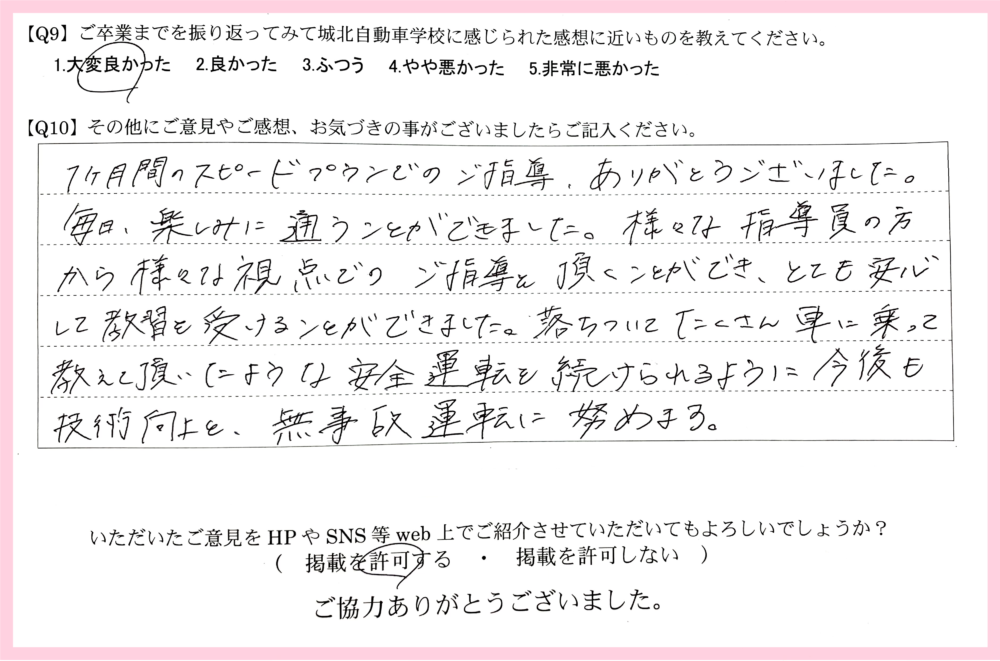 【Q9】ご卒業までを振り返ってみて城北自動車学校に感じられた感想に近いものを教えてください。
1.大変良かった 2.良かった 3.ふつう 4.やや悪かった 5.非常に悪かった
【Q10】その他にご意見やご感想、お気づきの事がございましたらご記入ください。
1ヶ月間のスピードプランでのご指導、ありがとうございました。
毎日、楽しみに通うことができました。様々な指導員の方
から様々な視点でのご指導を頂くことができ、とても安心
して教習を受けることができました。落ちついてたくさん車に乗って
教えて頂いたような安全運転を続けられるように今後も
技術向上を、無事故運転に努めまする。
いただいたご意見をHPやSNS等web上でご紹介させていただいてもよろしいでしょうか？
( 掲載を許可する ・ 掲載を許可しない )
ご協力ありがとうございました。